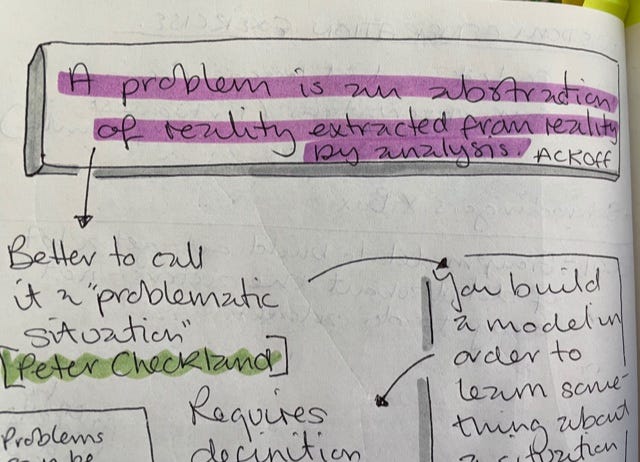 A problem is an abstraction
of reality extracted from reality
by analysis. ACKOFF
Better to call
it a "problematic
situation"
[Peter Checkland]
You build
a model in
order to
learn some-
thing about
a situation
Requires
definition
Problems
can be